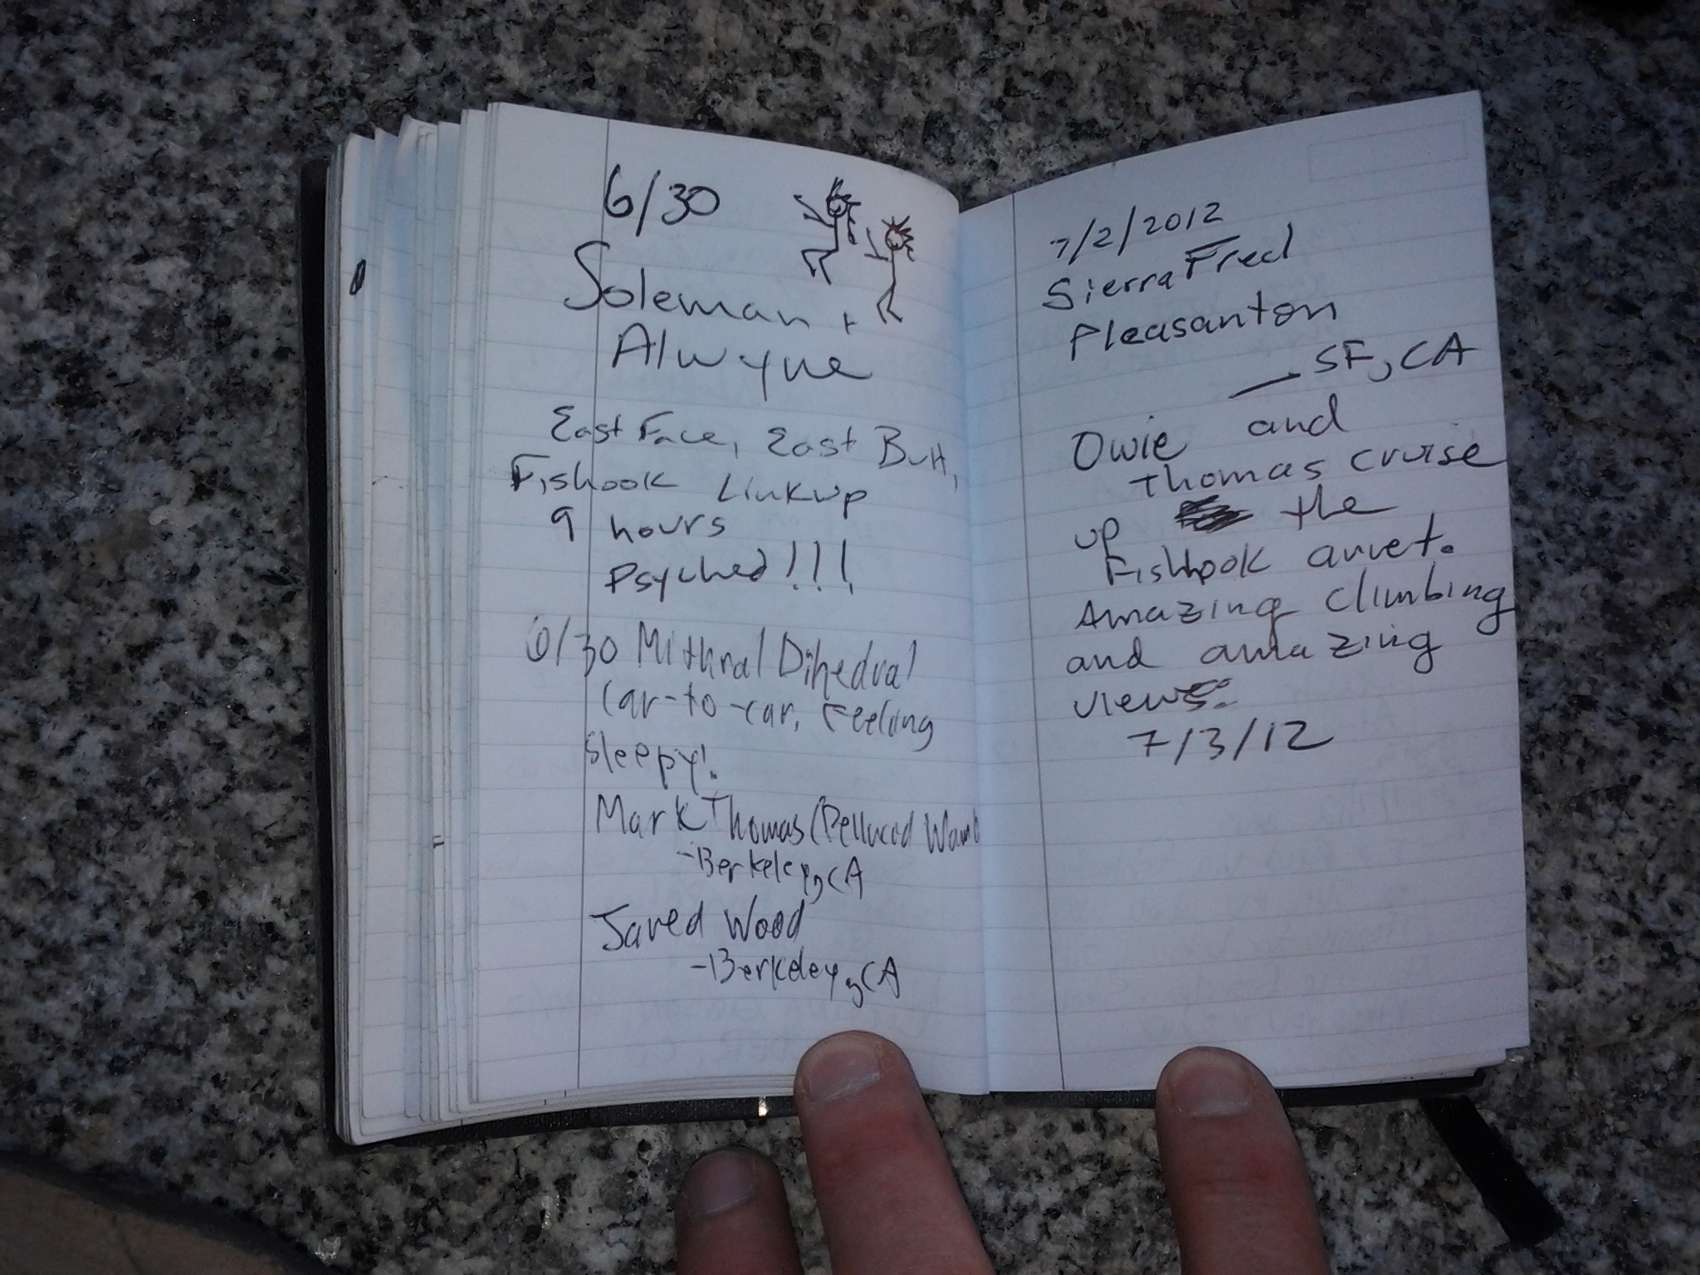 6/30
Soleman +
Alwyne
East Face, East Butt,
Fishook Linkup
9 hours
Psyched!!!
6/30 Mithral Dihedral
Car-to-car, Feeling
Sleepy!
Mark Thomas (Pellucid
-Berkeley, CA
Jared Wood
-Berkeley, CA
7/2/2012
Sierra Fred
Pleasanton
SF, CA
Owie and
Thomas cruise
up the
Fishhook arret.
Amazing climbing
and amazing
views.
7/3/12